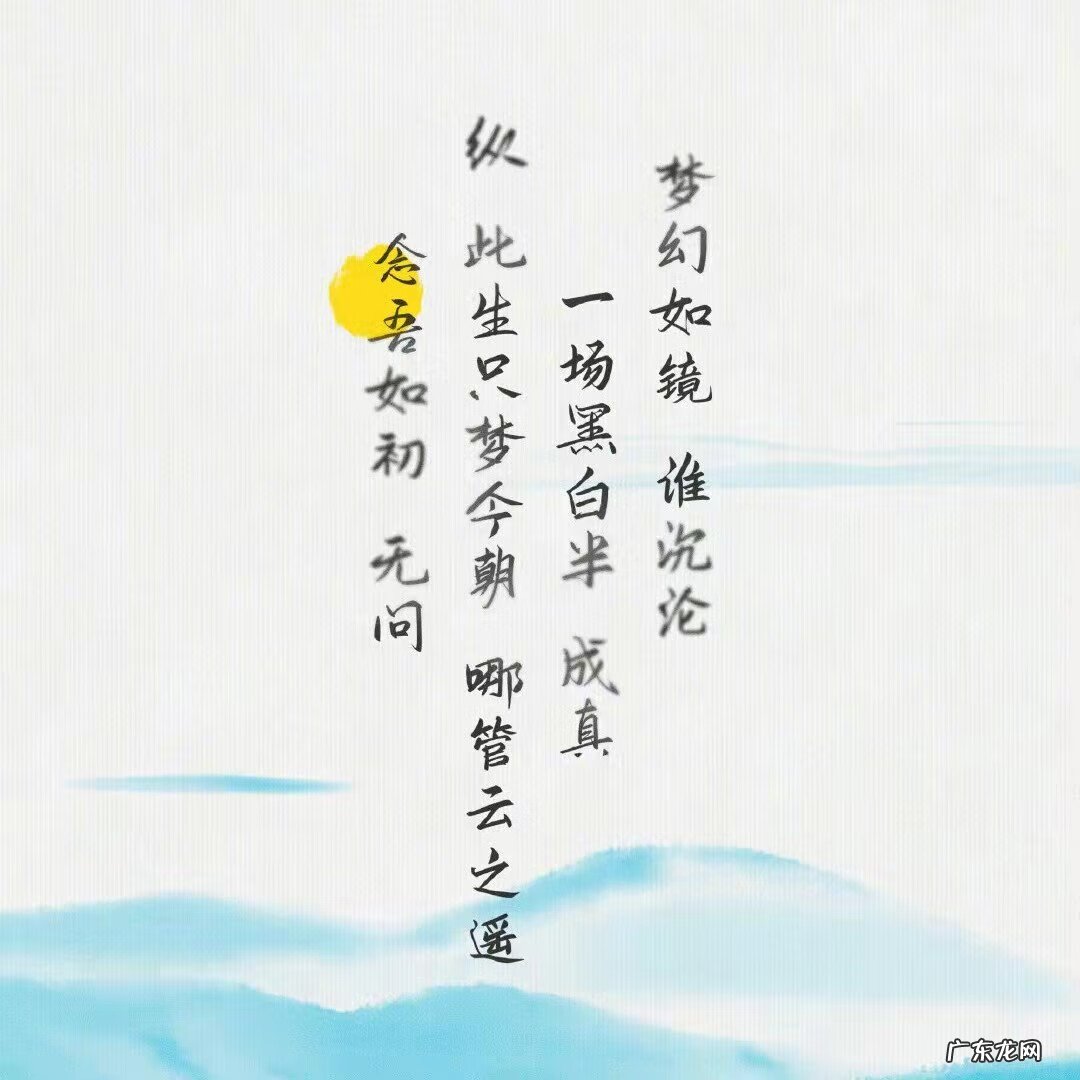 梦幻如镜 谁沉沦
一场黑白半 成真
纵 此生只梦今朝 哪管云之遥
念吾如初 无问
广东龙网